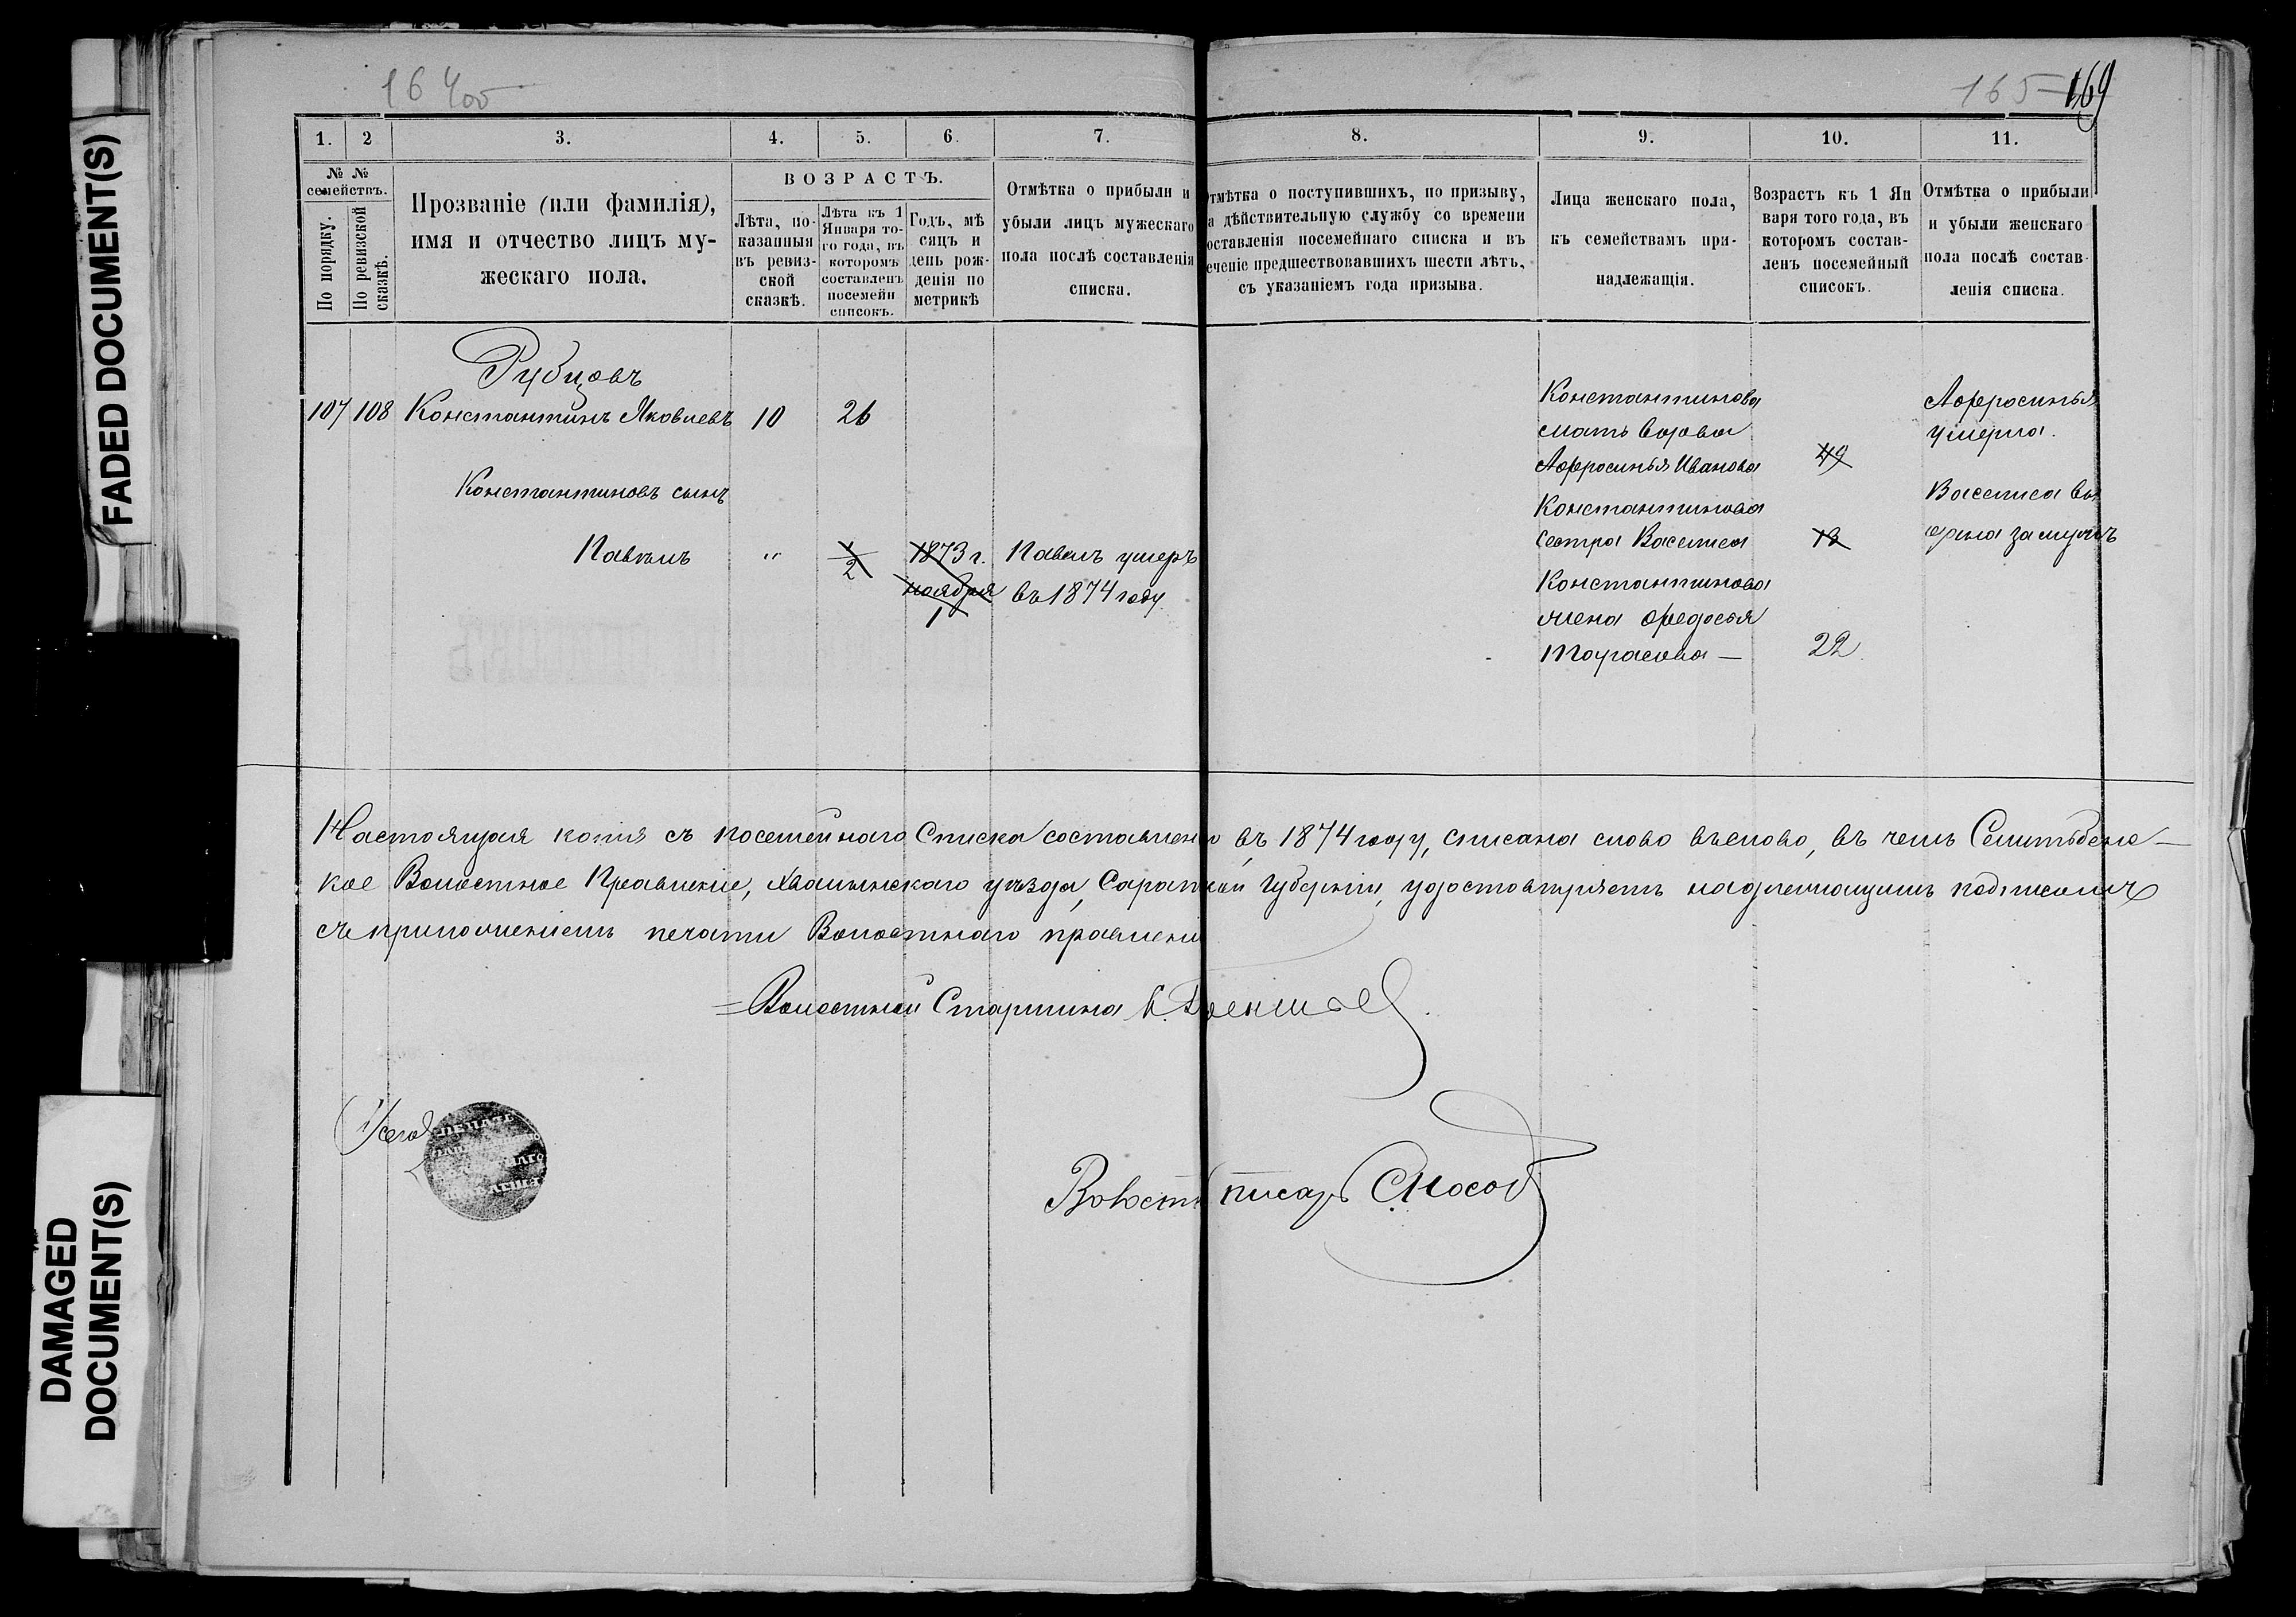 FADED DOCUMENT(S)
DAMAGED
DOCUMENT(S)
164об
165
169
1. 2 3. 4. 5. 6. 7. 8. 9. 10. 11.
№ №
семействъ.
По порядку.
По ревизской
сказкѣ.
Прозваніе (или фамилія),
имя и отчество лицъ му-
жескаго пола.
ВОЗРАСТЪ.
Лѣта, по-
казанныя
въ ревиз-
ской
сказкѣ.
Лѣта къ 1
Января то-
го года, въ
которомъ
составленъ
посемейн
списокъ.
Годъ, мѣ
сяцъ и
день рож-
денія по
метрикѣ
Отмѣтка о прибыли и
убыли лицъ мужескаго
пола послѣ составленія
списка.
тмѣтка о поступившихъ, по призыву,
а дѣйствительную службу со времени
оставленія посемейнаго списка и въ
еченіе предшествовавшихъ шести лѣтъ,
съ указаніемъ года призыва.
Лица женскаго пола,
къ семействамъ при-
надлежащія.
Возрастъ къ 1 Ян
варя того года, въ
которомъ состав-
ленъ посемейный
списокъ.
Отмѣтка о прибыли
и убыли женскаго
пола послѣ состав
ленія списка.
Рубцовъ
107 108 Константинъ Яковлевъ 10 26
Константиновъ сынъ
Павелъ " 1/2 1873 г. Павелъ умеръ
ноября въ 1874 году
1
Константинова
мать вдова
Афросинья Иванова 49
Константинова
сестра Василиса 13
Константинова
жена Федосья
Тарасова — 22
Афросинья
умерла.
Василиса вы
дана замужъ
Настоящая копія съ посемейнаго Списка составлено въ 1874 году, списана слово въ слово, въ чемъ
кое Волостное Правленіе, Хвалынскаго уѣзда, Саратской Губерніи, удостовѣряетъ надлежащимъ подписомъ
съ приложеніемъ печати Волостнаго правлені
Волостной Старшина
Волостн писарь
ПЕЧАТЬ